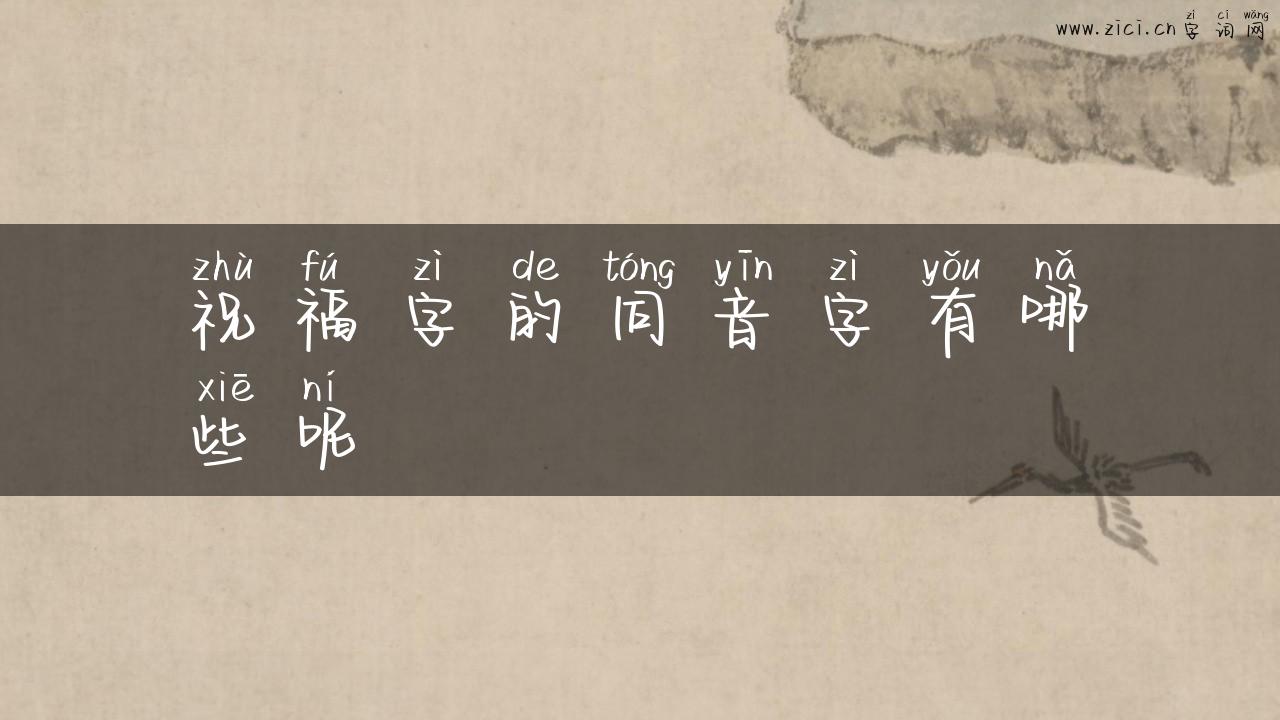 zì cí wǎng
www.zici.cn 字词网
zhù fú zì de tóng yīn zì yǒu nǎ
祝福字的同音字有哪
xiē ní
些呢